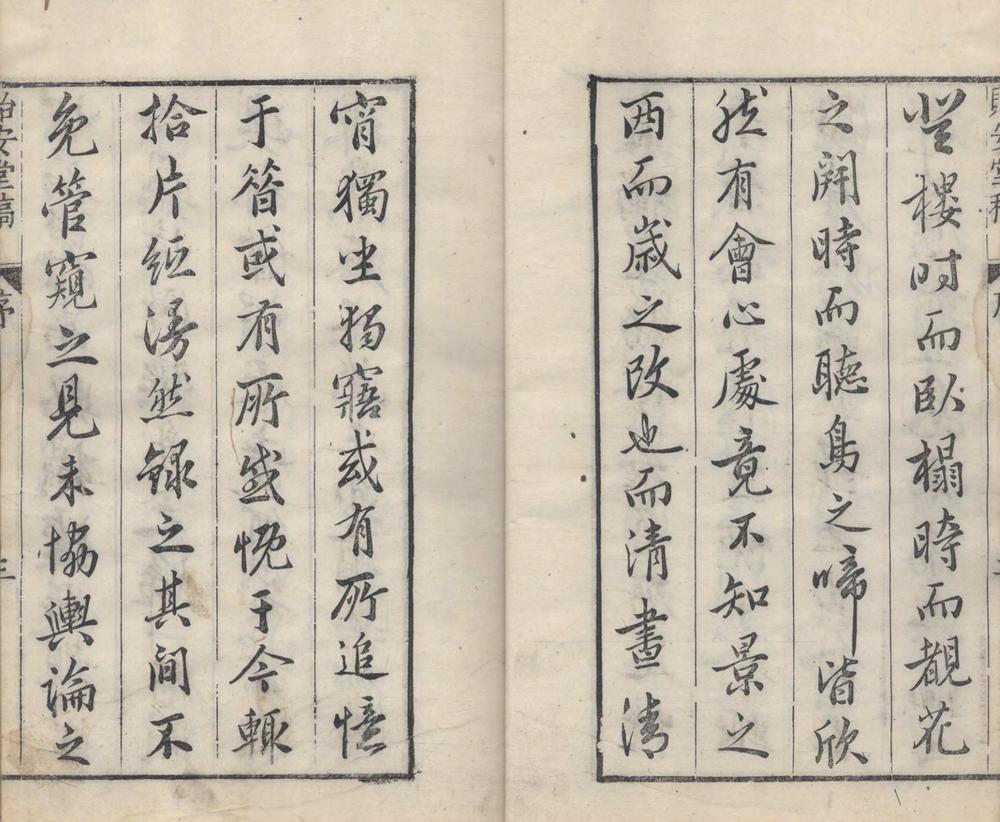 登樓时而臥榻時而覩花
之開時而聽鳥之啼皆欣
然有會心處竟不知景之
西而歲之改也而清晝清
宵獨坐獨寤或有所追憶
于昔或有所感慨于今輒
拾片紙漫然錄之其間不
免管窺之見未恊輿論之
貽安堂稿 序 三